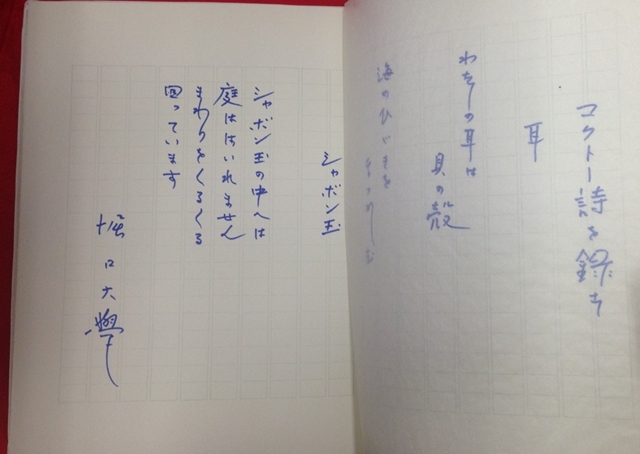 コクトー詩を録す
耳
わたしの耳は
貝の殻
海のひゞきを
なつかしむ
シャボン玉
シャボン玉の中へは
庭ははいれません
まわりをくるくる
回っています
堀口大學